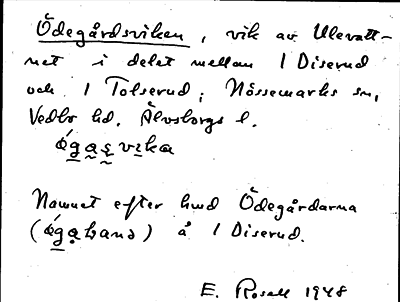 Ödegårdsviken, vik av Ulevatt-
net i delet mellan 1 Diserud
och 1 Tolserud; Nössemarks sn,
Vedbo hd. Älvsborgs l.
Namnet efter hmd Ödegårdarna
å 1 Diserud.
E. Rosell 1948